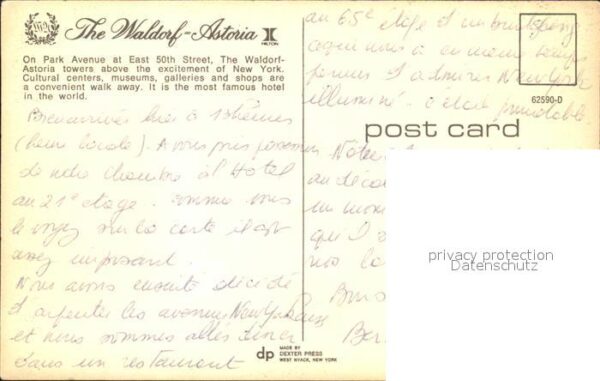 The Waldorf-Astoria
HILTON
On Park Avenue at East 50th Street, The Waldorf-
Astoria towers above the excitement of New York.
Cultural centers, museums, galleries and shops are
a convenient walk away. It is the most famous hotel
in the world.
Bien arrivés hier à
(heure locale). Avons pris possession
de notre chambre à l'Hôtel
au 21e étage. comme vous
le voyez sur la carte il est
assez imposant.
Nous avons ensuite décidé
d'arpenter les avenues New Yorkaises
et nous sommes allés dîner
dans un restaurant
au 65e étage d'un building
ce qui nous a en même temps
permis d'admirer New York
illuminé. c'était formidable.
62590-D
post card
Notre
au
un
qu'il
nos
privacy protection
Datenschutz
dp
MADE BY
DEXTER PRESS
WEST NYACK, NEW YORK